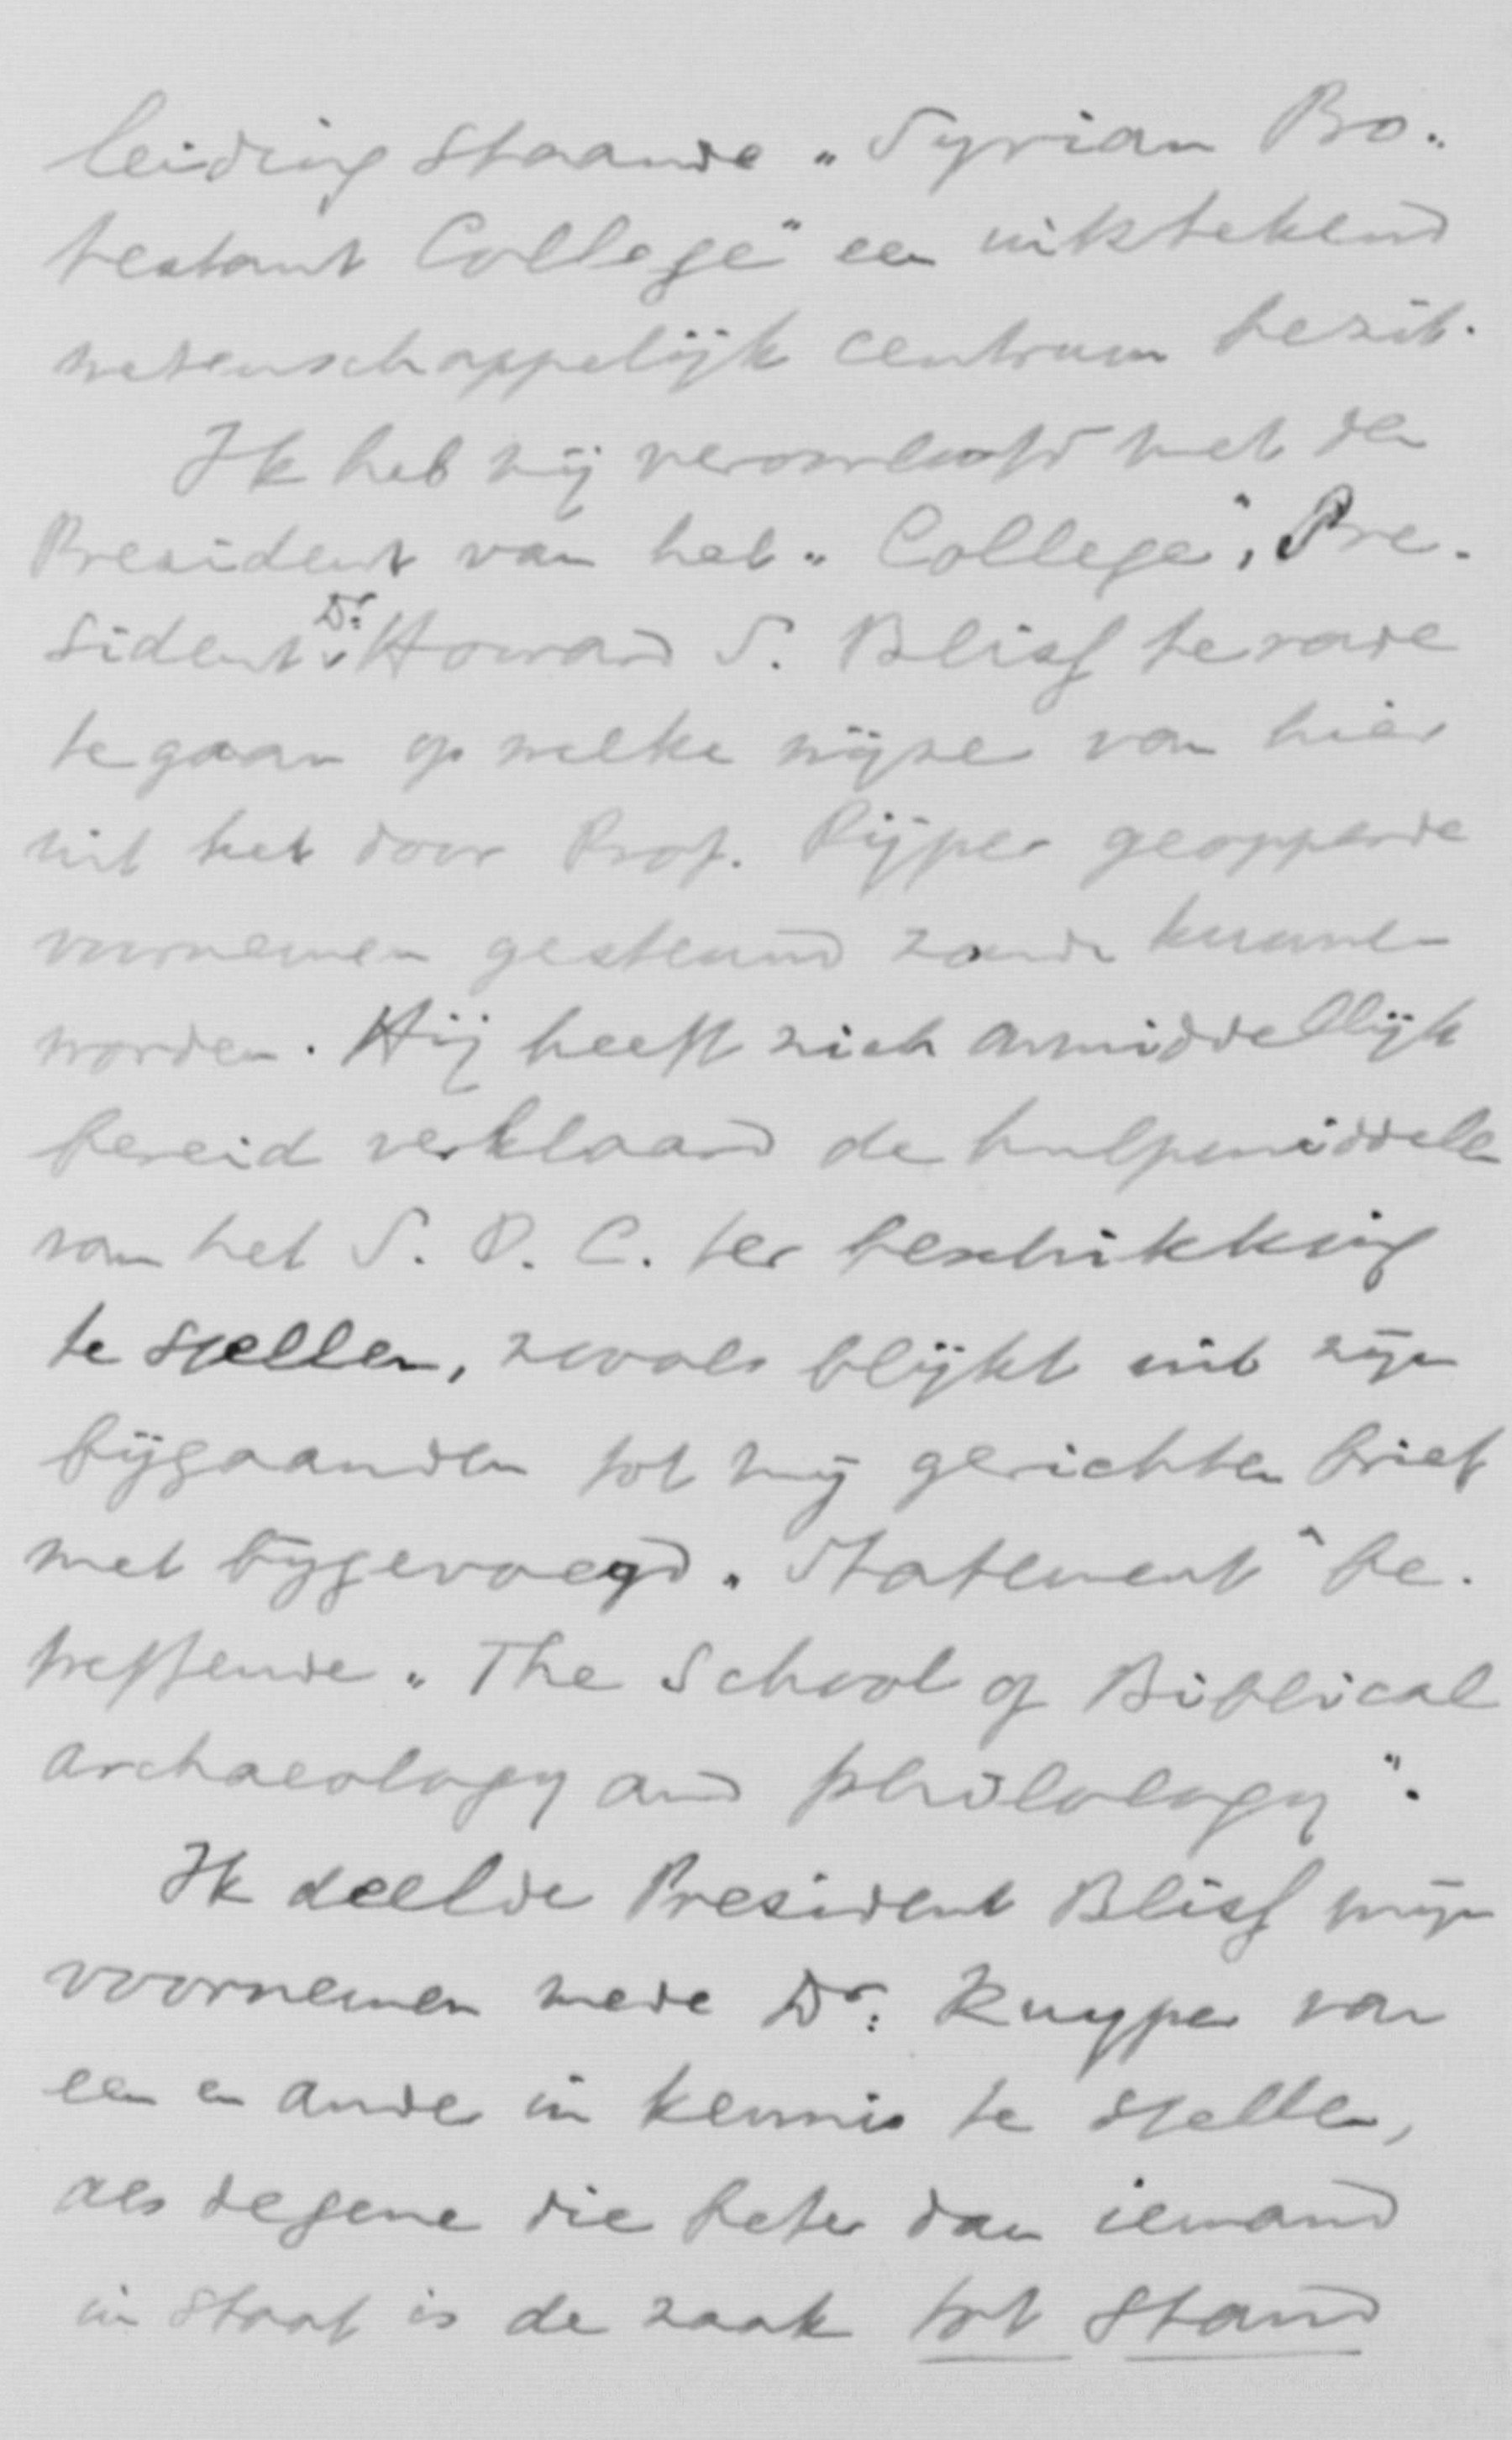 leiding staande „Syrian Pro„
testant College" een uitstekend
wetenschappelijk centrum bezit.
Ik heb mij veroorloofd met den
President van het „College", Pre-
sident Dr. Howard S. Bliss te rade
te gaan op welke wijze van hier
uit het door Prof. Pijper geopperde
voornemen gesteund zoude kunnen
worden. Hij heeft zich onmiddellijk
bereid verklaard de hulpmiddelen
van het S. P. C. ter beschikking
te stellen, zooals blijkt uit zijn
bijgaanden tot mij gerichten brief
met bijgevoegd „Statement" be-
treffende „The School of Biblical
archaeology and philology".
Ik deelde President Bliss mijn
voornemen mede Dr. Kuyper van
een en ander in kennis te stellen,
als degene die beter dan iemand
in staat is de zaak tot stand